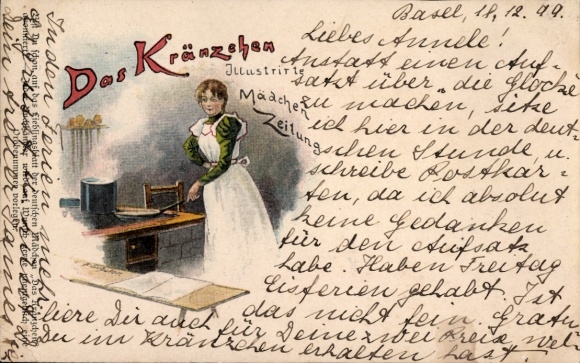 Basel, 18.12.99.
Das Kränzchen
Illustrirte
Mädchen
Zeitung
Liebes Annele!
Anstatt einen Auf-
satz über „die Glocke
zu machen, sitze
ich hier in der deut-
schen Stunde, u.
schreibe Postkar-
ten, da ich absolut
keine Gedanken
für den Aufsatz
habe. Haben Freitag
Eisferien gehabt. Ist
das nicht fein. Gratu-
liere Dir auch für Deine zwei Preise, wel-
Du im Kränzchen erhalten hast.
In den Ferien mehr
Dein